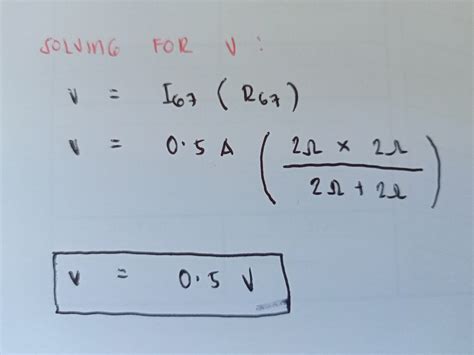 SOLVING FOR V :
V = I67 ( R67 )
V = 0.5 A ( 2Ω × 2Ω / 2Ω + 2Ω )
V = 0.5 V